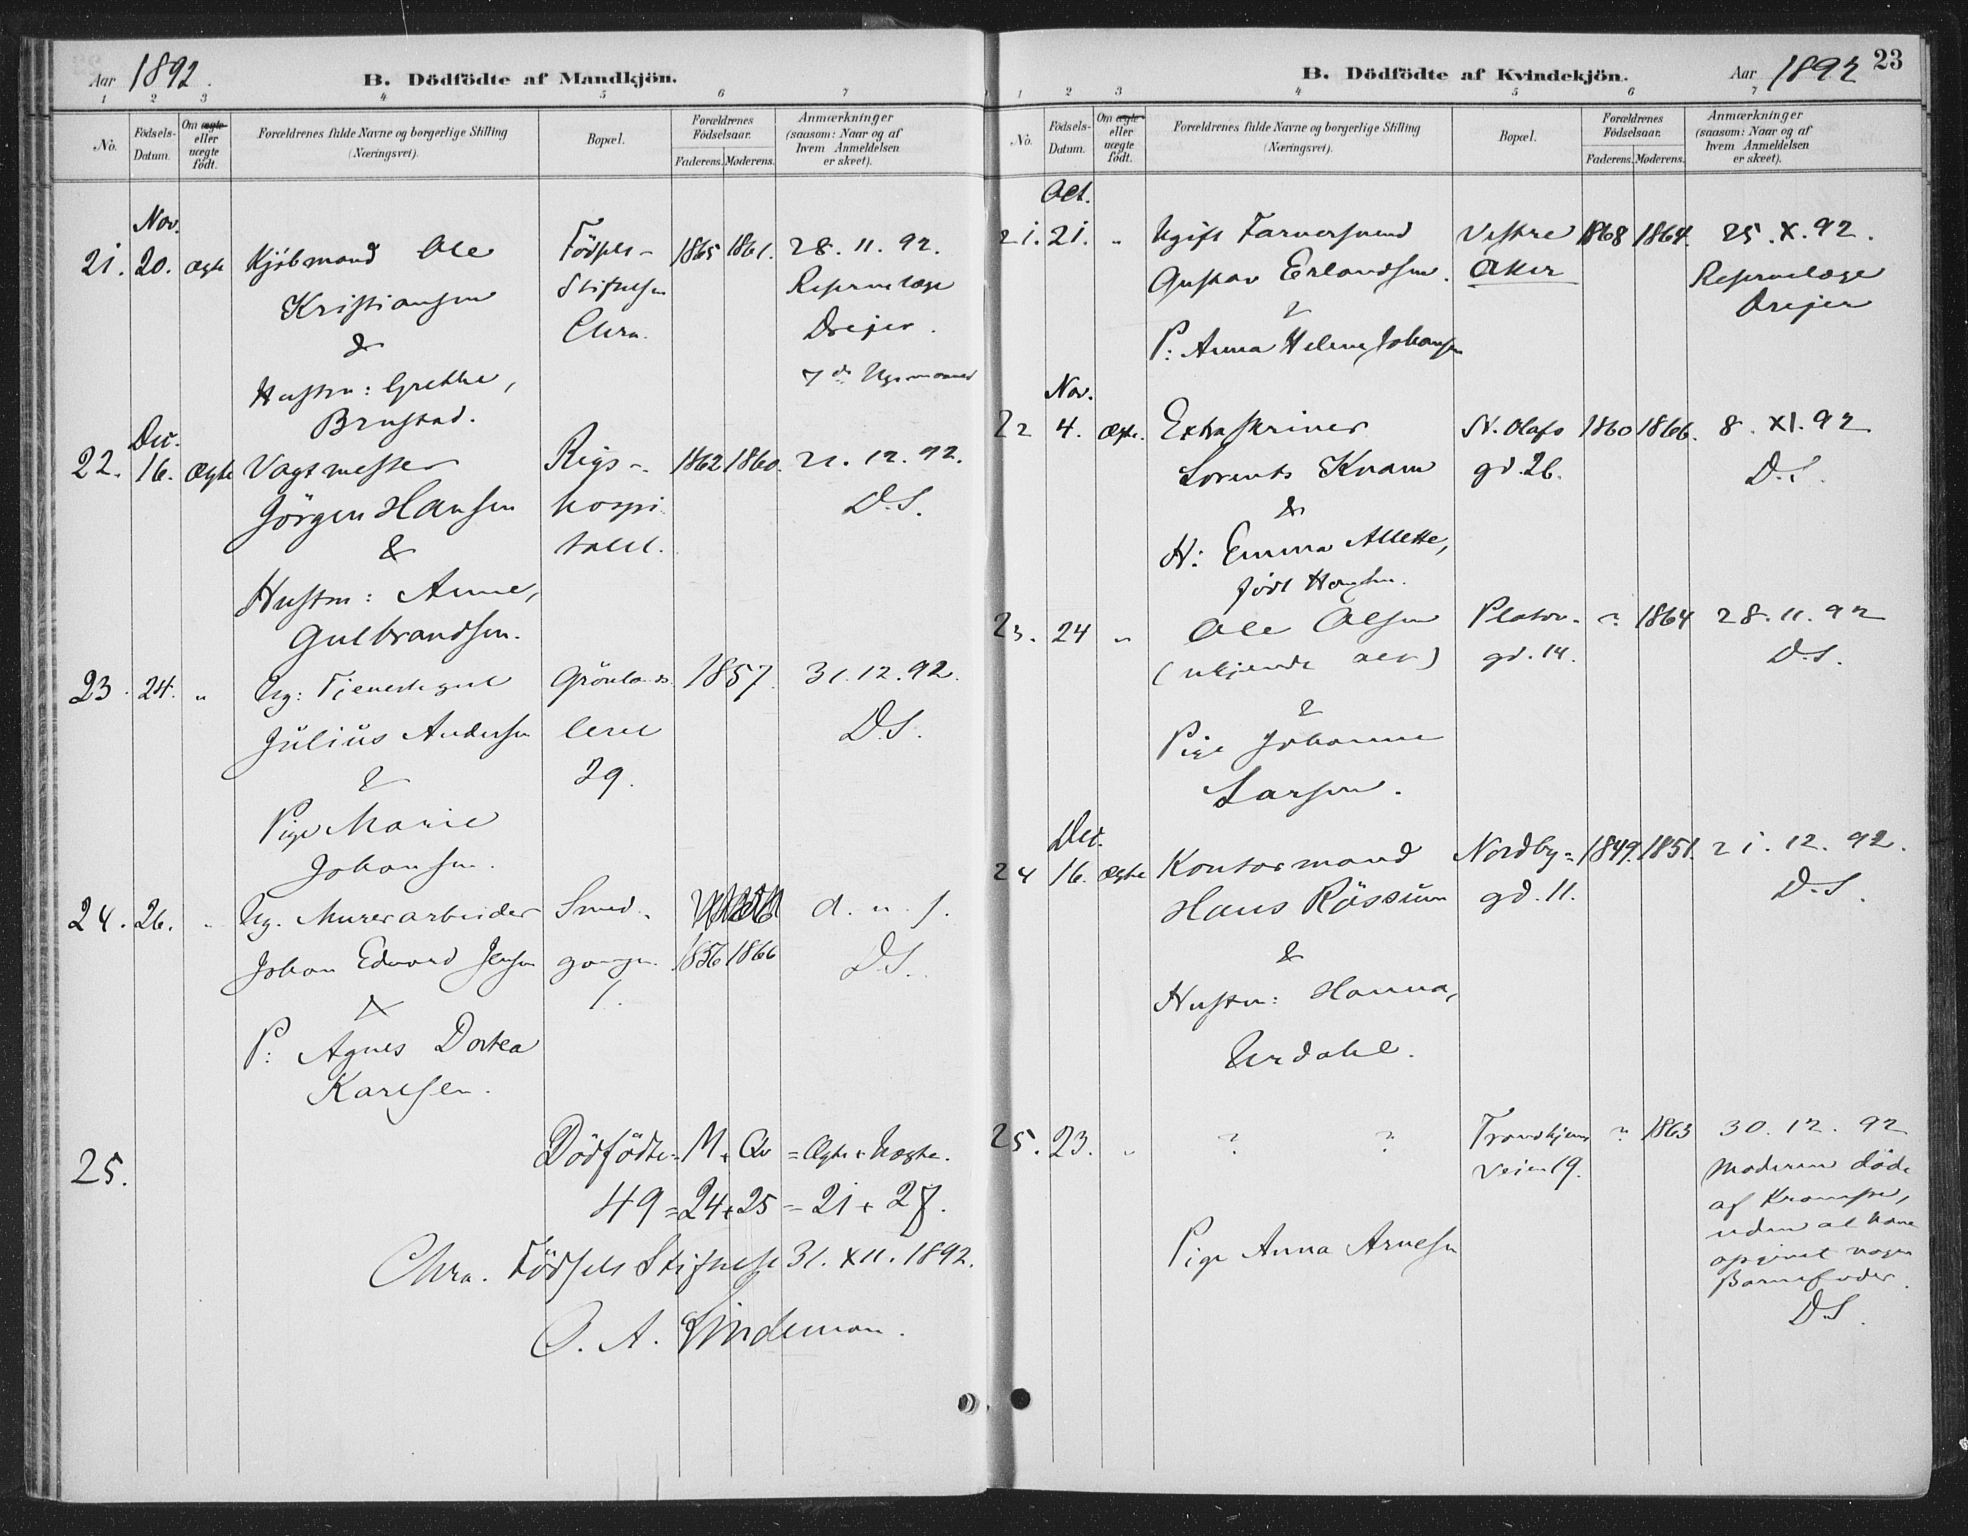 Aar 1892.
B. Dödfödte af Mandkjön.
1 2 3 4 5 6 7
No.
Födsels-Datum.
Om ægte eller uægte födt.
Forældrenes fulde Navne og borgerlige Stilling (Næringsvei).
Bopæl.
Forældrenes Födselsaar.
Faderens. Moderens.
Anmærkninger (saasom: Naar og af hvem Anmeldelsen er skeet).
Nov.
21. 20. ægte Kjøbmand Ole Fødsels- 1865 1861. 28. 11. 92.
Kristiansen Stiftelsen Reservelæge
& Chra. Drejer.
Hustru: Grethe, 7de
Brustad.
Dec.
22. 16. Ægte Vagtmester Rigs- 1862 1860. 21. 12. 92.
Jörgen Hansen hospi D.S.
& talet.
Hustru: Anne,
Gulbrandsen.
23. 24. „ Ug: Tjenestegut Grönlands 1857. 31. 12. 92.
Julius Andersen leret D.S.
& 29.
Pige Marie
Johansen.
24. 26. „ Ug. Murerarbeider Smed- d. u. s.
Johan Edvard Jensen gangen 1856 1866 D.S.
& 1.
P: Agnes Dortea
Karlsen.
25.
Dödfödte = M + Qv = Ægte + Uægte.
49 = 24 + 25 = 21 + 28.
Chra. Födsels Stiftelse 31. XII. 1892.
O. A. Lindeman.
23
B. Dödfödte af Kvindekjön.
Aar 1892
1 2 3 4 5 6 7
No.
Födsels-Datum.
Om ægte eller uægte födt.
Forældrenes fulde Navne og borgerlige Stilling (Næringsvei).
Bopæl.
Forældrenes Födselsaar.
Faderens. Moderens.
Anmærkninger (saasom: Naar og af hvem Anmeldelsen er skeet).
Oct.
21. 21. „ Ugift Farversvend Vestre 1868 1864. 25. X. 92.
Gustav Erlandsen. Aker Reservelæge
& Drejer
P: Anna Helene Johansen
Nov.
22 4. Ægte. Extraskriver St. Olafs 1860 1866. 8. XI. 92
Lorents Knam gd. 26. D.S.
&
H: Emma Alette,
født Hansen.
23. 24 „ Ole Olsen Platou- ? 1864 28. 11. 92
(ukjendt alder) gd. 14. D.S.
&
Pige Johanne
Larsen.
Dec.
24 16. Ægte Kontormand Nordby- 1849. 1851. 21. 12. 92.
Hans Rössum gd. 11. D.S.
&
Hustru: Hanna,
Urdahl.
25. 23. „ ? ? Trondhjems ? 1863 30. 12. 92
veien 19. Moderen døde
af Krampe,
Pige Anna Arnesen uden at have
opgivet nogen
Barnefader.
D.S.